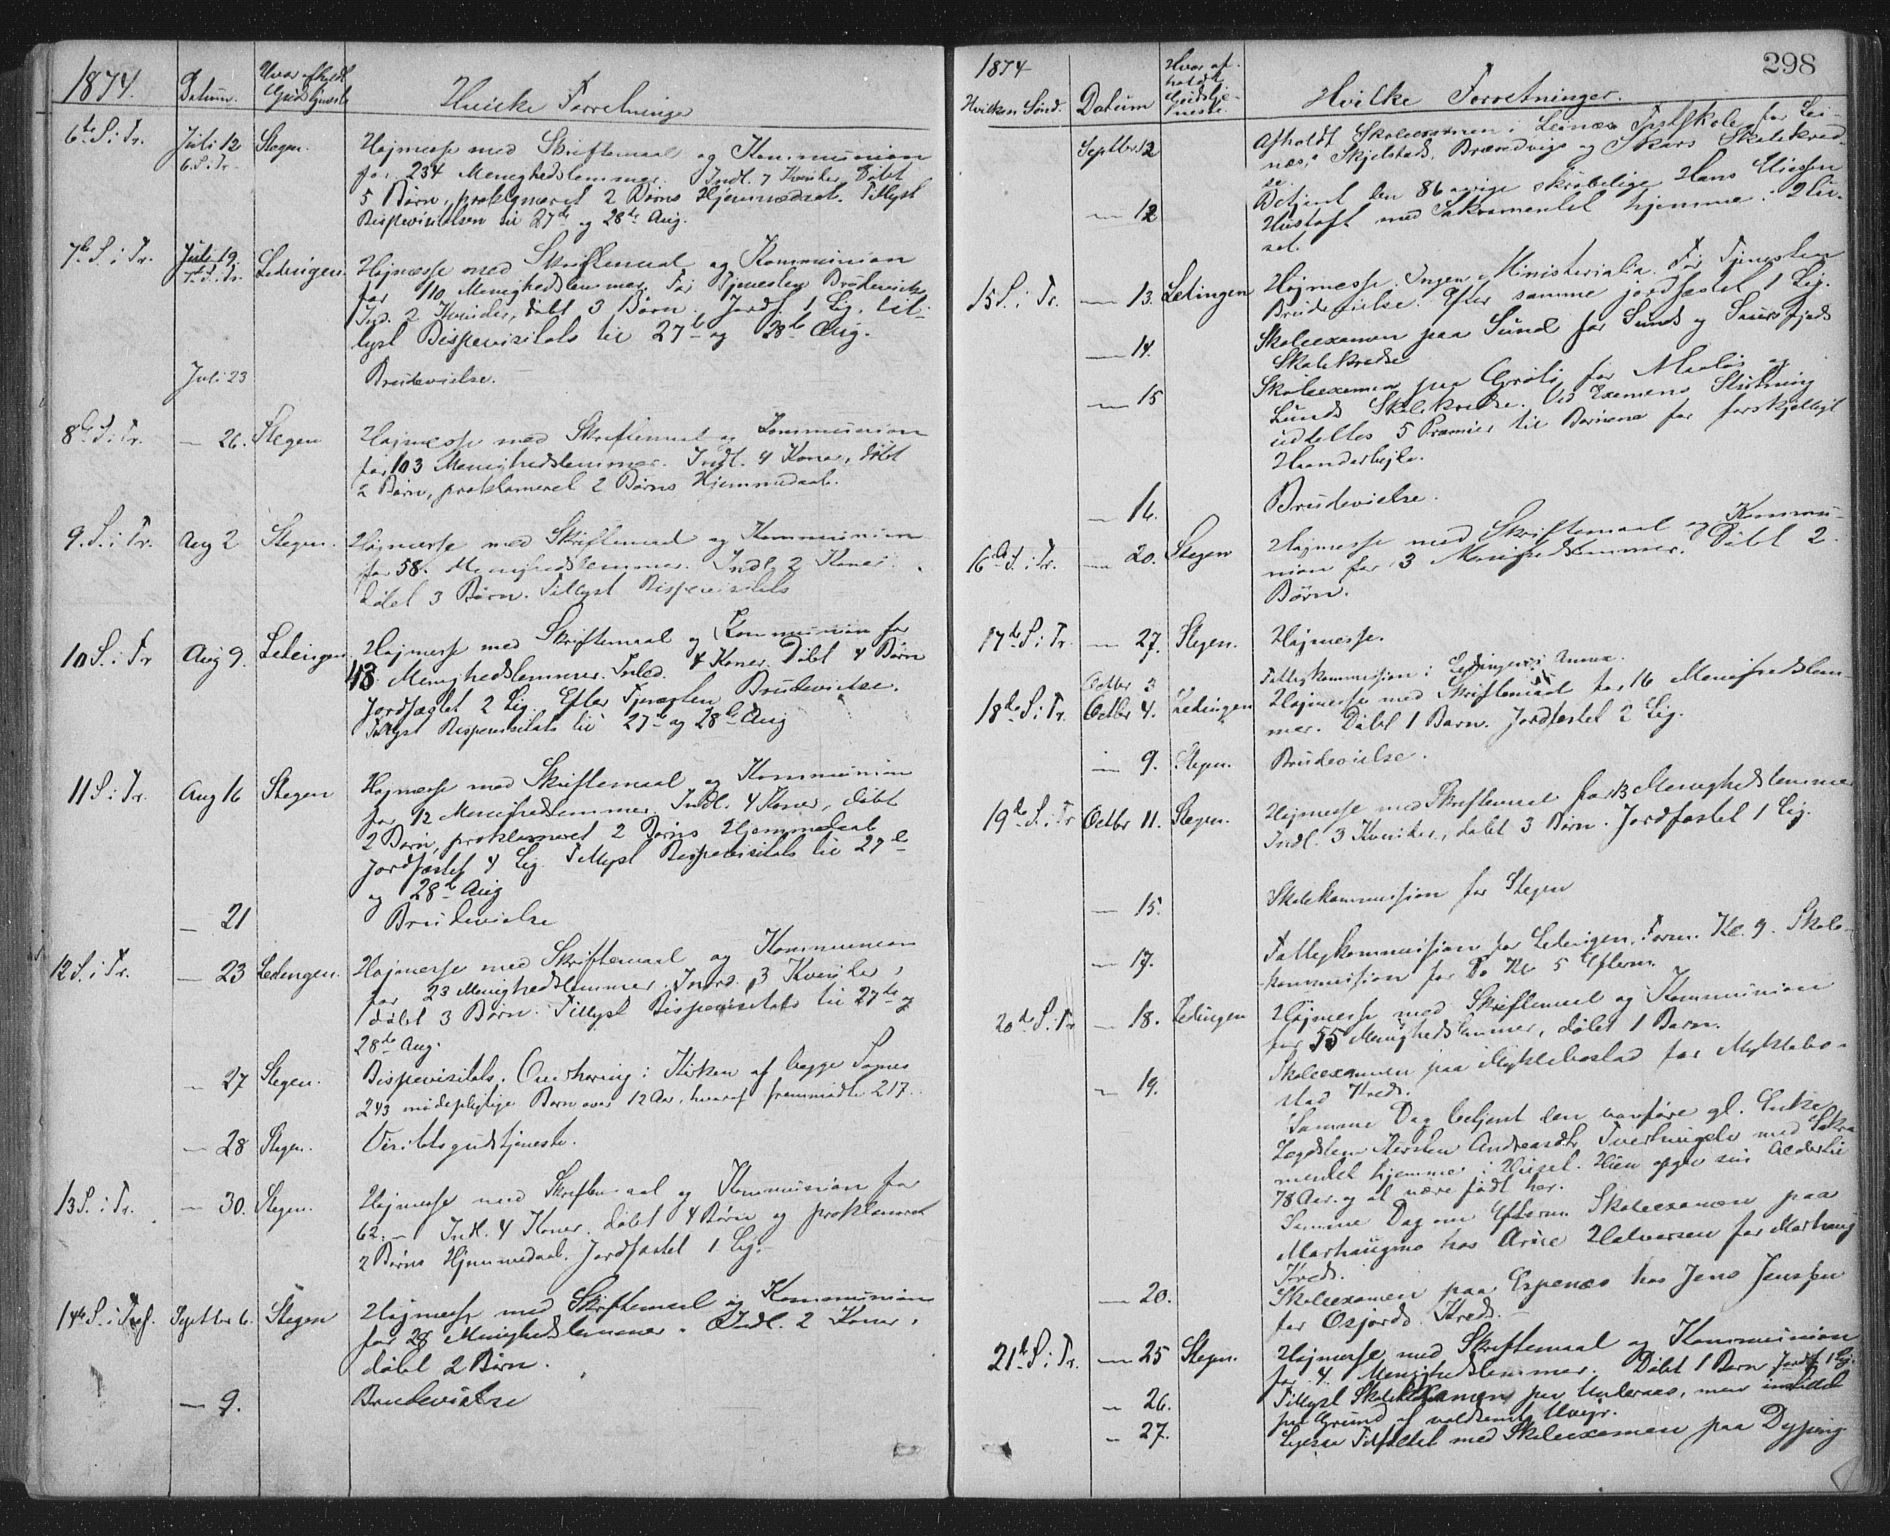 1874.
Datum.
Hvor afholdt Gudstjeneste
Hvilke Forretninger
6te S. i Tr. Juli 12 6. S. i Tr. Stegen. Højmesse med Skriftemaal og Kommunion
for 234 Menighedslemmer. Indl. 7 Kvinder, Døbt
5 Børn, proklameret 2 Børns Hjemmedaab. Tillyst
Bispevisitatsen til 27de og 28de Aug.
7de S. i Tr. Juli 19. 7de S. i Tr. Lødingen. Højmesse med Skriftemaal og Kommunion
for 110 Menighedslemmer. Før Tjenesten Brudevielse
Ind. 2 Kvinder, døbt 3 Børn. Jordf. 1 Lig, til-
lyst Bispevisitats til 27de og 28de Aug.
Juli 23 Brudevielse.
8de S. i Tr. — 26. Stegen Højmesse med Skriftemaal og Kommunion
for 103 Menighedslemmer. Indl. 4 Koner, døbt
2 Børn, proklameret 2 Børns Hjemmedaab.
9. S. i Tr. Aug 2 Stegen. Højmesse med Skriftemaal og Kommunion
for 58. Menighedslemmer. Indl. 2 Koner.
døbt 3 Børn. Tillyst Bispevisitats
10 S. i Tr Aug 9. Ledingen Højmesse med Skriftemaal og Kommunion for
48 Menighedslemmer. Inled. 4 Koner. Døbt 4 Børn
Jordfæstet 2 Lig. Efter Tjenesten Brudevielse.
Tillyst Bispevisitats til 27de og 28de Aug
11 S. i Tr. Aug 16 Stegen Højmesse med Skriftemaal og Kommunion
for 92 Menighedslemmer, Indl. 4 Koner, døbt
2 Børn, proklameret 2 Børns Hjemmedaab
Jordfæstet 4 Lig. Tillyst Bispevisitats til 27de
og 28de Aug
— 21 Brudevielse
12 S. i Tr. — 23 Ledingen. Højmesse med Skriftemaal og Kommunion
for 23 Menighedslemmer. 3 Kvinder,
døbt 3 Børn. Tillyst Bispevisitats til 27de og
28de Aug.
— 27 Stegen. Bispevisitats. Overhøring i Kirken af begge Sognes
243 mødepligtige Børn over 12 Aar, hvoraf fremmødte 217.
— 28 Stegen. Visitatsgudstjeneste.
13 S. i Tr. — 30. Stegen. Højmesse med Skriftemaal og Kommunion for
62. — Indl. 4 Koner. døbt 4 Børn og proklameret
2 Børns Hjemmedaab. Jordfæstet 1 Lig.
14de S. i Tref. Septbr 6. Stegen Højmesse med Skriftemaal og Kommunion
for 28 Menighedslemmer. Indl. 2 Koner,
døbt 2 Børn.
— 9. Brudevielse
298
1874
Hvilken Sønd. Datum Hvor af-
holdt
Gudstje-
neste.
Hvilke Forretninger.
Septbr 12 Afholdt Skoleexamen i Leines Fastskole for Lei-
nes, Skjelstads, Brændvigs og Skars Skolekred-
se.
— 12 Betjent den 86 aarige skrøbelige Hans
Hustoft med Sakramentet hjemme i Hu-
set.
15 S. i Tr. — 13. Ledingen Højmesse. Ingen Ministerialia. Før Tjenesten
Brudevielse. Efter samme jordfæstet 1 Lig.
— 14. Skoleexamen paa Sund for Sunds og
Skolekredse
— 15 Skoleexamen paa Grøtø for og
Lunds Skolekredse. Ved Examens Slutning
uddeltes 5 Præmier til Børnene for forskjelligt
Haandarbejde.
— 16. Brudevielse.
16de S. i Tr. — 20. Stegen Højmesse med Skriftemaal og Kommu-
nion for 3 Menighedslemmer. Døbt 2
Børn.
17de S. i Tr. — 27. Stegen. Højmesse.
Octbr 3 Fattigkommission i Ledingens Annex.
18de S. i Tr. Octbr 4. Ledingen Højmesse med Skriftemaal for 16 Menighedslem-
mer. Døbt 1 Barn. Jordfæstet 2 Lig.
— 9. Stegen. Brudevielse.
19de S. i Tr Octbr 11. Stegen. Højmesse med Skriftemaal for 13 Menighedslemmer
Indl. 3 Kvinder, døbt 3 Børn. Jordfæstet 1 Lig.
— 15. Skolekommission for Stegen
— 17. Fattigkommission for Ledingen. Form. Kl. 9. Skole-
kommission for Do Kl 5 Efterm.
20de S. Tr — 18. Ledingen Højmesse med Skriftemaal og Kommunion
for 55 Menighedslemmer, døbt 1 Barn.
— 19. Skoleexamen paa Myklebostad for Myklebo-
stad Kreds.
Samme Dag betjent den vanføre gl. Enke
Lægdslem Kirsten Andreasdtr Tverlningele med Sakra
mentet hjemme i Huset. Hun opgav sin Alder til
78 Aar. og at være født her.
Samme Dag om Efterm. Skoleexamen paa
Marhaugmo hos Arne Halvorsen for Marhaug
Kreds.
— 20. Skoleexamen paa Espenes hos Jens Jenssen
for Osjords Kreds.
21de S. i Tr. — 25 Stegen. Højmesse med Skriftemaal og Kommunion
for 4. Menighedslemmer. Døbt 1 Barn Jordf. 1 Lig.
— 26. Tillyst Skoleexamen paa men
paa Grund af voldsomt Uvejr.
— 27. Ligesaa Tilfældet med Skoleexamen paa Dyping